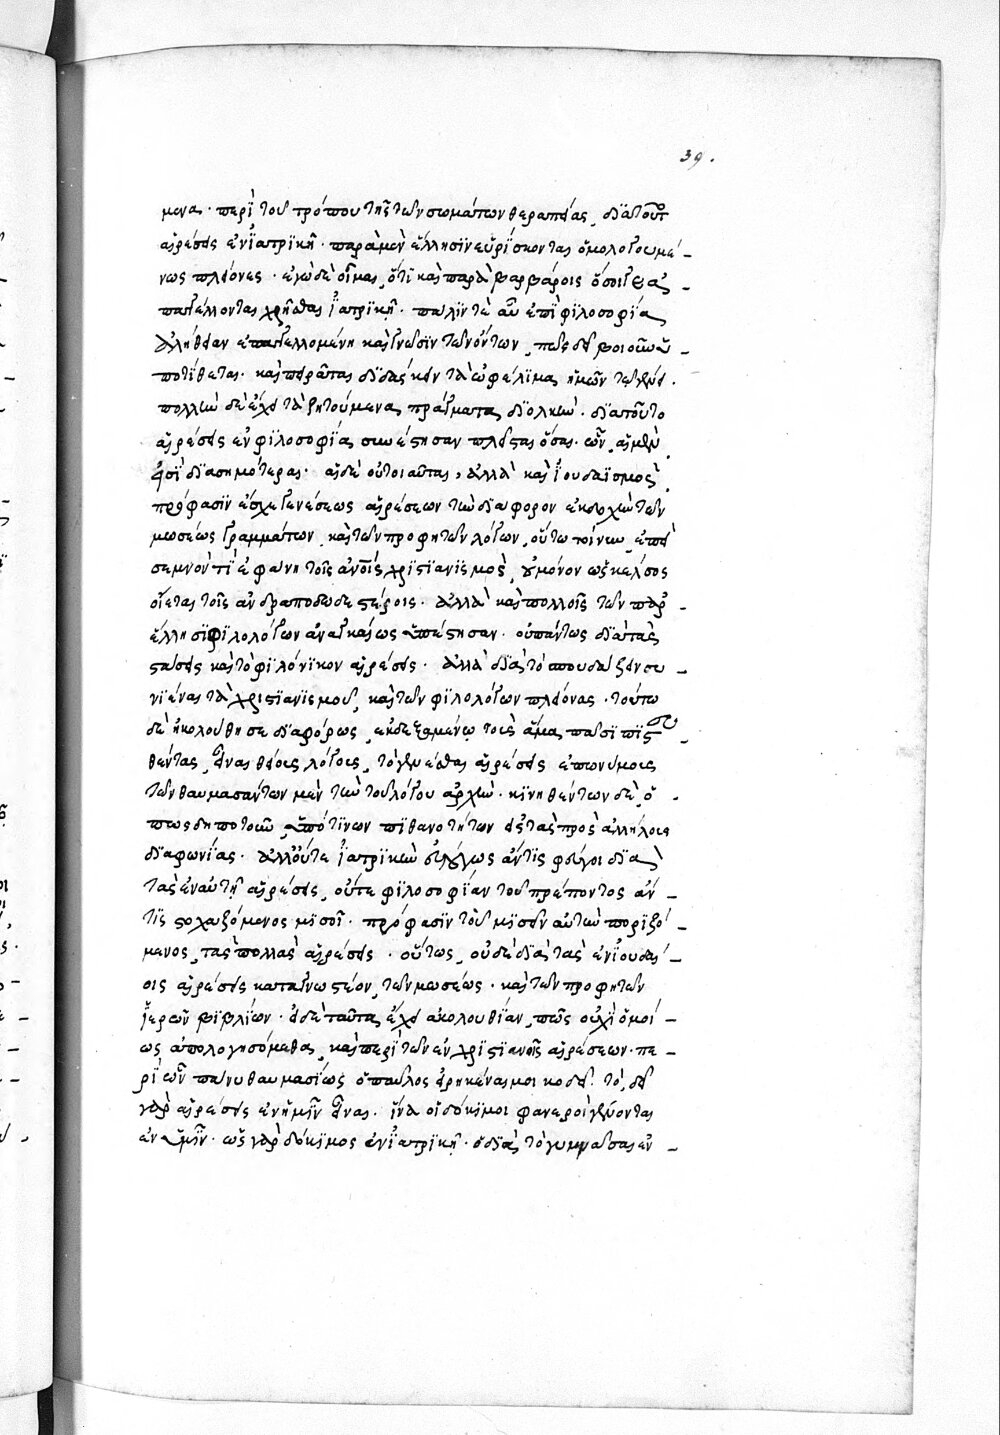 39.
μενα· περὶ τοῦ τρόπου τῆς τῶν σωμάτων θεραπείας, διὰ τοῦτ
αἱρέσεις ἐν ἰατρικῇ· παρὰ μὲν ἕλλησιν εὑρίσκονται ὁμολογουμέ-
νως πλείονες· ἐγὼ δὲ οἶμαι, ὅτι καὶ παρὰ βαρβάροις ὅσοι γε ἐ-
παγγέλλονται χρῆσθαι ἰατρικῇ· πάλιν τὲ αὖ ἐπὶ φιλοσοφία
ἀλήθειαν ἐπαγγελλομένη καὶ γνῶσιν τῶν ὄντων, πῶς δεῖ βιοῦν ὑ-
ποτίθεται· καὶ πειρᾶται διδάσκειν τὰ ὠφέλιμα ἡμῶν τῷ γένει.
πολλὴν δὲ ἔχει τὰ ζητούμενα πράγματα διολκήν· διὰ τοῦτο
αἱρέσεις ἐν φιλοσοφίᾳ συνέστησαν πλεῖσται ὅσαι· ὧν, αἱ μέν
εἰσὶ διασημότεραι· αἱ δὲ οὐ τοιαῦται, ἀλλὰ καὶ ἰουδαϊσμὸς
πρόφασιν ἔσχε γενέσεως αἱρέσεων τὴν διάφορον ἐκδοχὴν τῶν
μωσέως γραμμάτων, καὶ τῶν προφητῶν λόγων, οὕτω τοίνυν, ἐπεὶ
σεμνόν τι ἐφάνη τοῖς ἀνοις χριστιανισμὸς, οὐ μόνον ὡς κέλσος
οἴεται τοῖς ἀνδραποδωδεστέροις· ἀλλὰ καὶ πολλοῖς τῶν παρ-
ἕλλησι φιλολόγων ἀναγκαίως ὑπέστησαν· οὐ πάντως διὰ τὰς
στάσεις καὶ τὸ φιλόνικον αἱρέσεις· ἀλλὰ διὰ τὸ σπουδάζειν συ-
νιέναι τὰ χριστιανισμοῦ, καὶ τῶν φιλολόγων πλείονας· τούτω
δὲ ἠκολούθησε διαφόρως, ἐκδεξαμένων τοὺς ἅμα πᾶσι πιστευ-
θέντας, εἶναι θείους λόγους, τὸ γενέσθαι αἱρέσεις ἐπωνύμους
τῶν θαυμασάντων μὲν τὴν τοῦ λόγου ἀρχήν· κινηθέντων δὲ, ὅ-
πως δήποτ' οὖν ὑπό τινων πιθανοτήτων εἰς τὰς πρὸς ἀλλήλους
διαφωνίας· ἀλλ' οὔτε ἰατρικὴν εὐλόγως ἄν τις φεύγοι διὰ
τὰς ἐν αὐτῇ αἱρέσεις, οὔτε φιλοσοφίαν τοῦ πρέποντος ἄν-
τις στοχαζόμενος μισοῖ· πρόφασιν τοῦ μισεῖν αὐτὴν ποριζό-
μενος, τὰς πολλὰς αἱρέσεις· οὕτως, οὐδὲ διὰ τὰς ἐν ἰουδαί-
οις αἱρέσεις καταγνωστέον, τῶν μωσέως· καὶ τῶν προφητῶν
ἱερῶν βιβλίων· εἰ δὲ ταῦτα, ἔχει ἀκολουθίαν, πῶς οὐχὶ ὁμοί-
ως ἀπολογησόμεθα, καὶ περὶ τῶν ἐν χριστιανοῖς αἱρέσεων· πε-
ρὶ ὧν πάνυ θαυμασίως ὁ παῦλος εἰρηκέναι μοι δοκεῖ· τὸ, δεῖ
γὰρ αἱρέσεις ἐν ἡμῖν εἶναι· ἵνα οἱ δόκιμοι φανεροὶ γένωνται
ἐν ὑμῖν· ὡς γὰρ δόκιμος ἐν ἰατρικῇ· ὁ διὰ τὸ γυμνάσασεν-